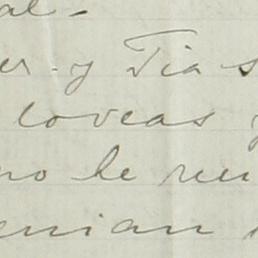 al.
er. y Tia s
loveas y
no he reci
enian